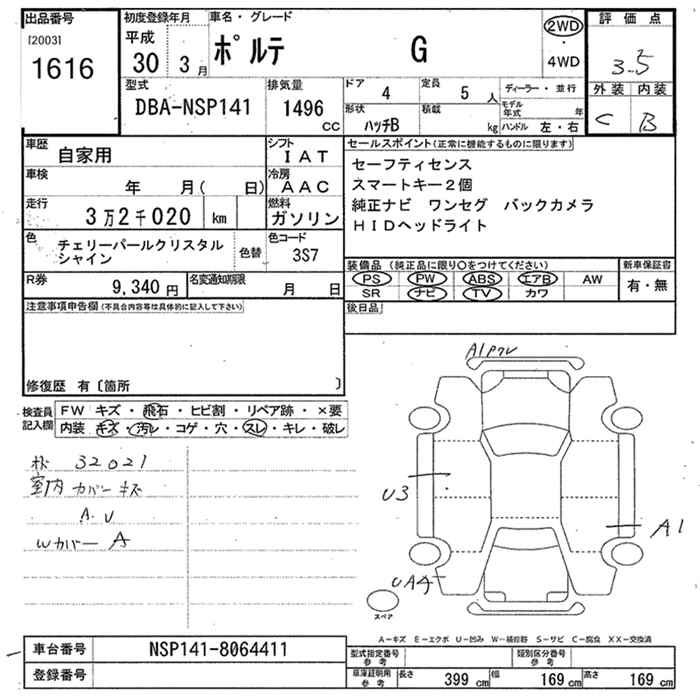 出品番号
[2003]
1616
初度登録年月
平成
30 3 月
車名・グレード
ポルテ G
2WD
・
4WD
評価点
3.5
外装 内装
C B
型式
DBA-NSP141
排気量
1496
CC
ドア 4
定員 5 人
形状 ハッチB
積載 kg
ディーラー・並行
モデル年式 年
ハンドル 左・右
車歴 自家用
シフト IAT
車検 年 月( 日)
冷房 AAC
走行 3万2千020 km
燃料 ガソリン
色 チェリーパールクリスタル
シャイン
色替
色コード 3S7
R券 9,340 円
名変通知期限 月 日
セールスポイント(正常に機能するものに限ります)
セーフティセンス
スマートキー2個
純正ナビ ワンセグ バックカメラ
HIDヘッドライト
装備品(純正品に限り○をつけてください)
PS PW ABS エアB AW
SR ナビ TV カワ
新車保証書
有・無
後日品
注意事項申告欄(不具合内容等は具体的に記入して下さい)
修復歴 有〔箇所 〕
検査員
記入欄
FW キズ・飛石・ヒビ割・リペア跡・×要
内装 キズ・汚レ・コゲ・穴・スレ・キレ・破レ
32021
室内 カバー キズ
A.U
Wカバー A
A1
U3
A1
UA4
スペア
A-キズ E-エクボ U-凹み W-補修跡 S-サビ C-腐食 XX-交換済
車台番号 NSP141-8064411
登録番号
型式指定番号
参考
類別区分番号
参考
車庫証明用
参考
長さ 399 cm
幅 169 cm
高さ 169 cm